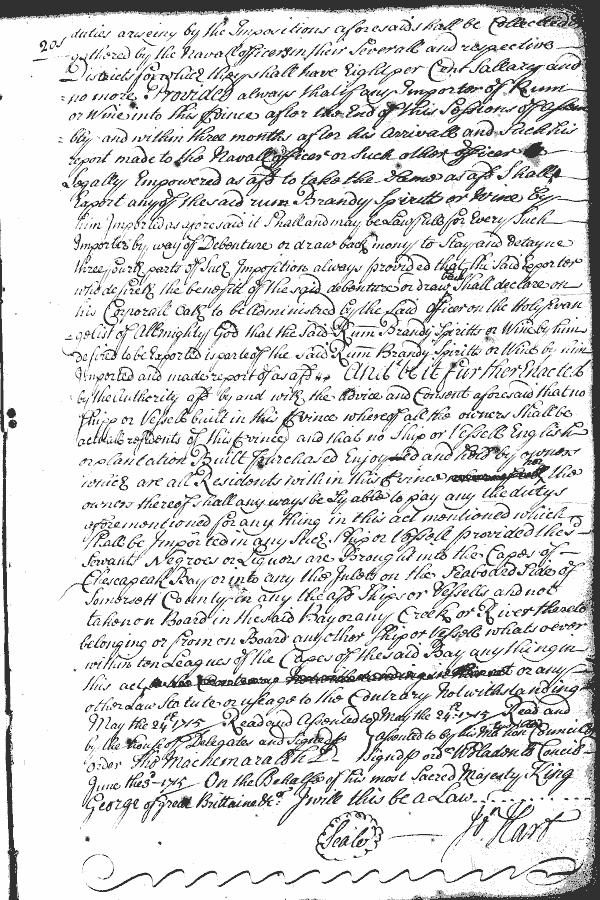 205
duties ariseing by the Impositions aforesaid shall be Collected &
gathered by the Navall officers in their Severall and respective
Districts for which they shall have Eight per Cent Sallary and
no more. Provided always that if any Importer of Rum
or Wine into this Province after the End of this Sessions of Assem
bly and within three months after his Arrivall and Such his
report made to the Navall officer or Such other officer
Legally Empowered as afsd to take the Same as afsd Shall
Export any of the said rum Brandy Spiritts or Wine by
him Imported as aforesaid it Shall and may be Lawfull for Every Such
Importer by way of Debenture or draw back mony to Stay and detayne
three fourth parts of Such Imposition always provided that the Said Exporter
who desireth the benefit of the said debenture or draw back Shall declare on
his Corporall Oath to be administred by the Said officer on the Holy Evan
gelist of Allmighty God that the Said Rum Brandy Spiritts or Wine by him
desired to be Exported is parte of the said Rum Brandy Spiritts or Wine by him
Imported and made report of as afsd. And be it further Enacted
by the Authority afsd by and with the Advice and Consent aforesaid that no
Shipp or Vessels built in this Province whereof all the owners Shall be
actuall residents of this Province and that no Ship or Vessell English
or plantation Built purchased Enjoyed and held by owners
which are all Residents within this Province nor the
owners thereof shall any ways be Lyable to pay any the dutys
aforementioned for any thing in this act mentioned which
Shall be Imported in any Such Ship or Vessell provided the sd
Servants Negroes or Liquors are Brought into the Capes of
Chesapeak Bay or into any the Inlets on the Seaboard Side of
Somersett County in any the afsd Ships or Vessells and not
taken on Board in the said Bay or any Creek or River thereto
belonging or from on Board any other Ship or Vessell whatsoever
within ten Leagues of the Capes of the said Bay any thing in
this act or any
other Law Statute or usage to the Contrary Notwithstanding
May the 24th 1715 Read and Assented to May the 24th 1715 Read and
by the house of Delegates and Signed p Assented to by his Councill
order Tho Macnemara Clk Signd p ordr W Bladen Cl Concil
June the 3d 1715 On the Behalfe of his most Sacred Majesty King
George of great Brittaine &ca I will this be a Law
Seale Jo Hart